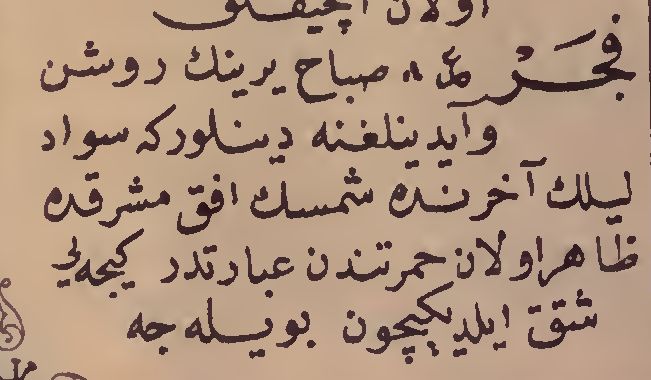 اولان اچیقلق
فَجْر ع ٨ صباح یرینك روشن
وآیدینلغنه دینلورکه سواد
لیلك آخرنده شمسك افق مشرقده
ظاهر اولان حمرتندن عبارتدر کیجه یی
شقق ایلدیکیچون بویله جه